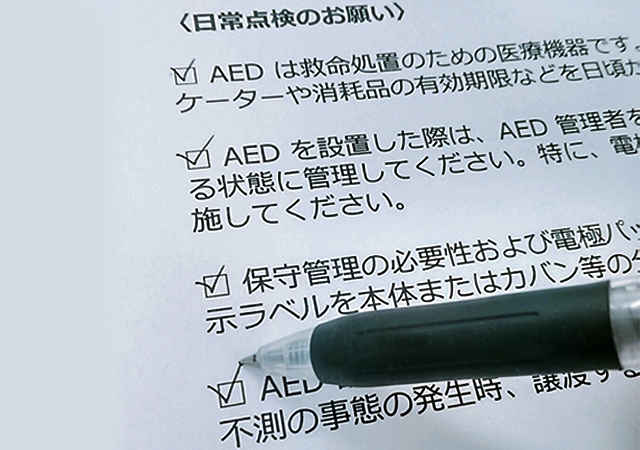 〈日常点検のお願い〉
☑ AED は救命処置のための医療機器です。
ケーターや消耗品の有効期限などを日頃か
☑ AED を設置した際は、AED 管理者を
る状態に管理してください。特に、電
施してください。
☑ 保守管理の必要性および電極パッ
示ラベルを本体またはカバン等の分
☑ AED
不測の事態の発生時、譲渡する